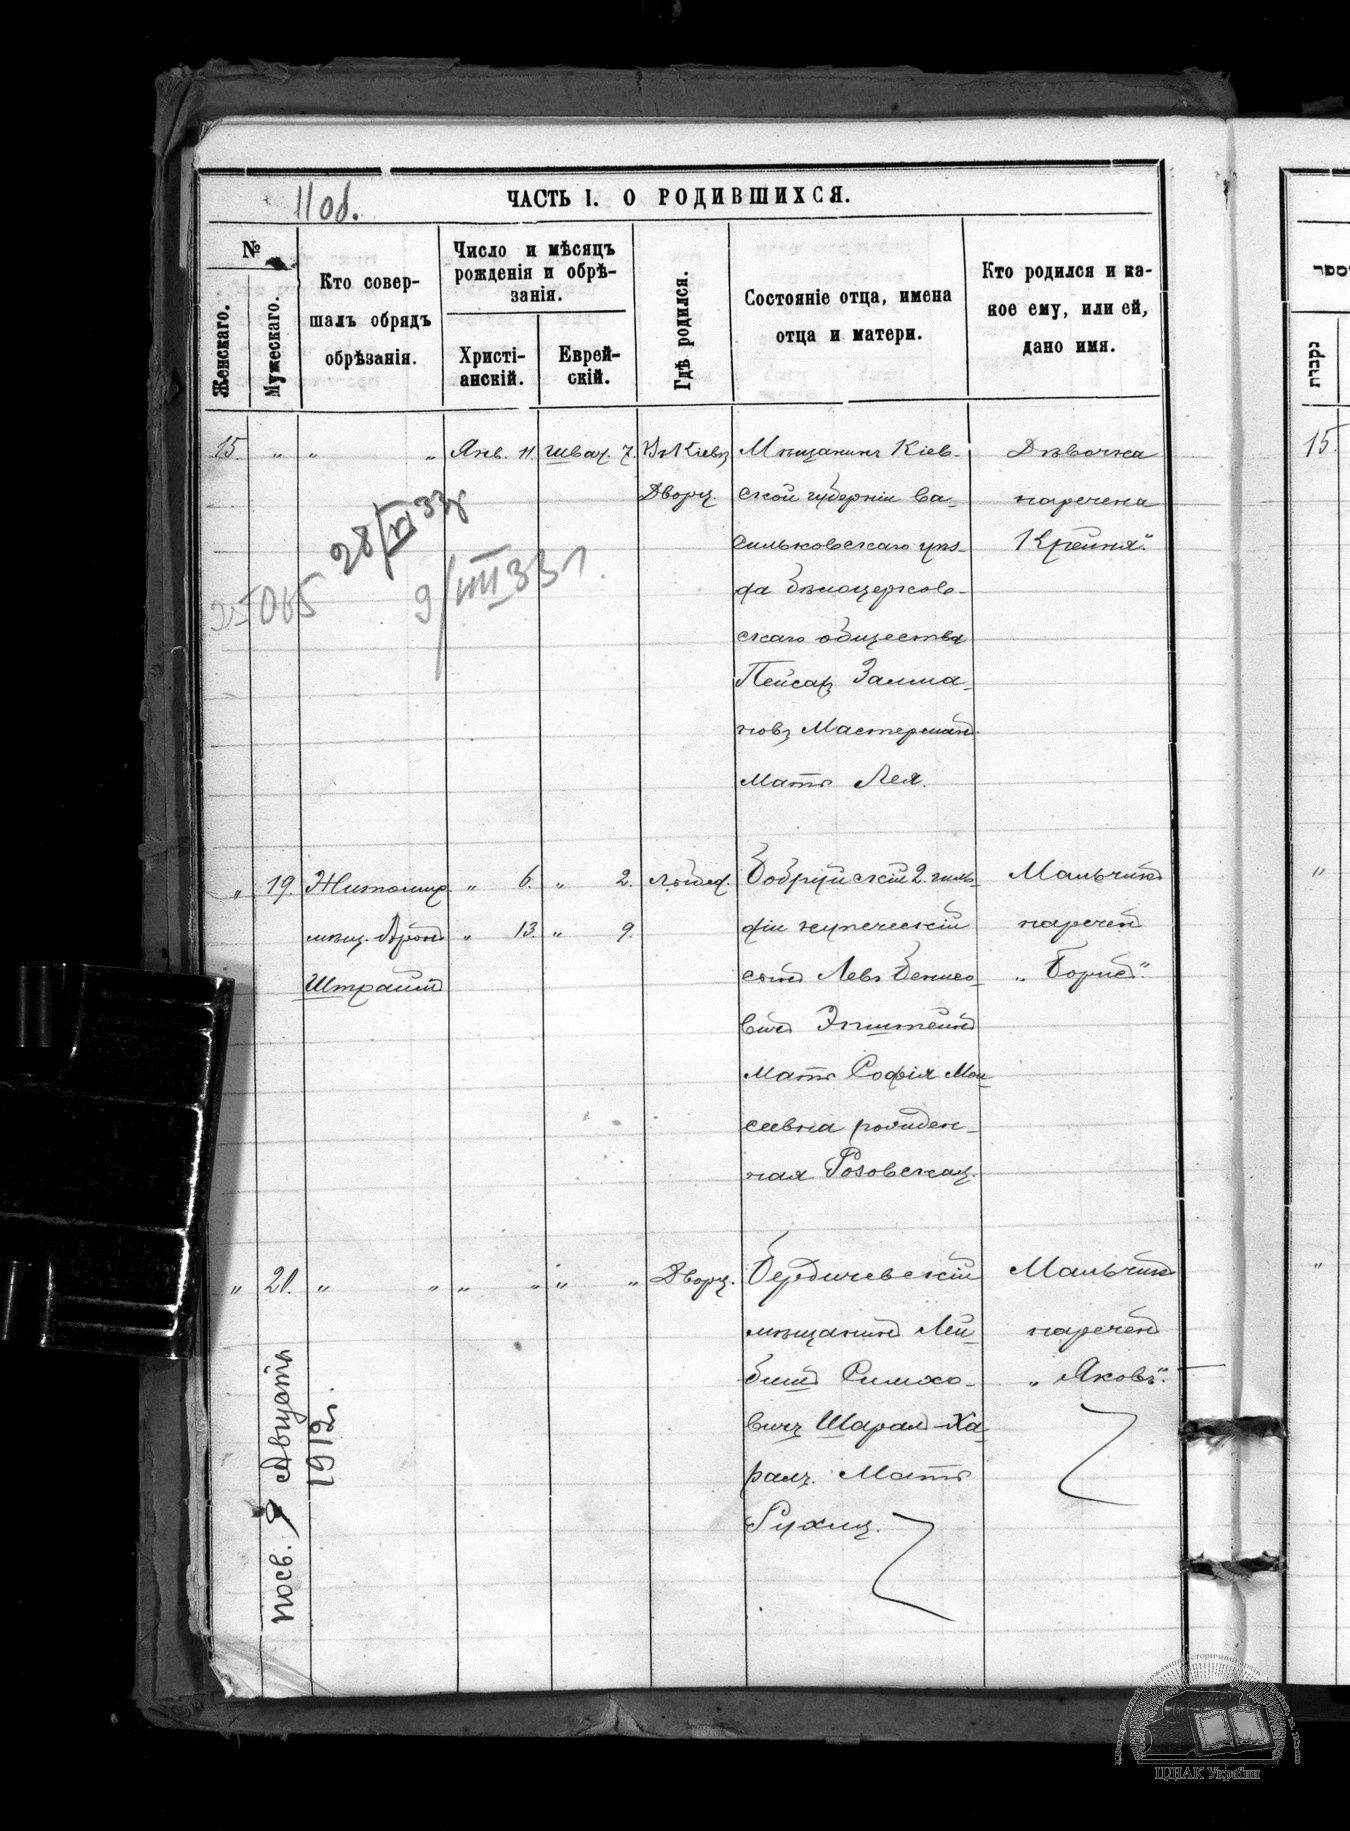 11 об.
ЧАСТЬ I. О РОДИВШИХСЯ.
№
Женскаго.
Мужескаго.
Кто совер-
шалъ обрядъ
обрѣзанія.
Число и мѣсяцъ
рожденія и обрѣ-
занія.
Христі-
анскій.
Еврей-
скій.
Гдѣ родился.
Состояніе отца, имена
отца и матери.
Кто родился и ка-
кое ему, или ей,
дано имя.
15. " " " Янв. 11. Шват. 7. Въ Кіевѣ
Дворц.
Мѣщанинъ Кіев-
ской губерніи Ва-
сильковскаго уѣз-
да Бѣлоцерков-
скаго общества
Пейсахъ Залма-
новъ Мастерманъ
Мать Лея.
Дѣвочка
наречена
"Крейня."
28/XI 33г
9/VIII 33 г.
25065
" 19. Житомир.
мѣщ. Аронъ
Штрахъ
" 6. " 2.
" 13. " 9.
Лыбед.
Бобруйскій 2. гиль-
діи купеческій
сынъ Левъ
Эпштейнъ
Мать Софія Мои-
сеевна рожден-
ная Розовская.
Мальчикъ
нареченъ
"Борисъ".
" 20. " " " " " " Дворц.
Бердичевскій
мѣщанинъ Лей-
Симхо-
вичъ Шарал-Ха-
ралъ. Мать
Рухля.
Мальчикъ
нареченъ
"Яковъ".
посв. 9 Августъ
1912 г.
מספר
נקבות
15.
"
"
ЦДІАК України